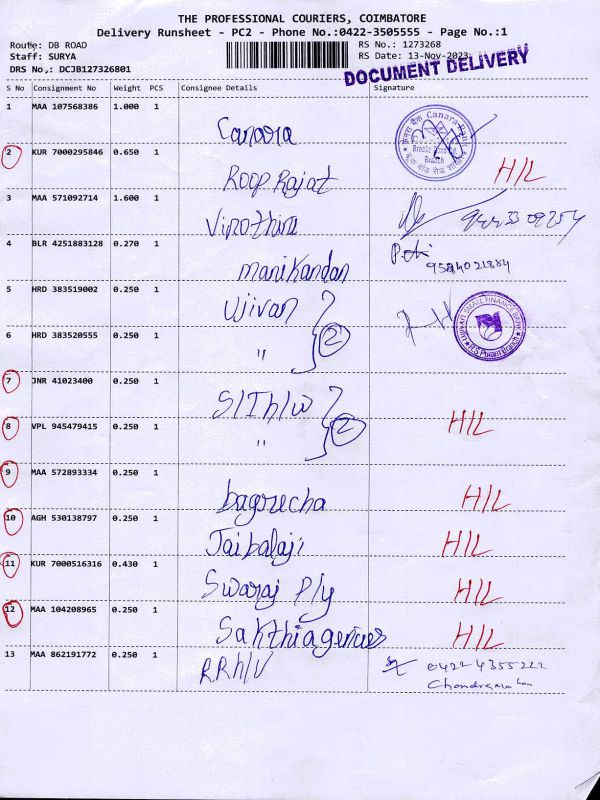 THE PROFESSIONAL COURIERS, COIMBATORE
Delivery Runsheet - PC2 - Phone No.:0422-3505555 - Page No.:1
Route: DB ROAD
RS No.: 1273268
Staff: SURYA
RS Date: 13-Nov-2023
DRS No,: DCJB127326801
DOCUMENT DELIVERY
S No Consignment No Weight PCS Consignee Details Signature
1 MAA 107568386 1.000 1 Canara
केनरा बैंक Canara Bank
Branch
2 KUR 7000295846 0.650 1 Roop Rajat H/L
3 MAA 571092714 1.600 1 Vinothini
4 BLR 4251883128 0.270 1 Manikandan
5 HRD 383519002 0.250 1 Ujivan
UJJIVAN SMALL FINANCE BANK
R.S Puram Branch
6 HRD 383520555 0.250 1 " 2
7 JNR 41023400 0.250 1
8 VPL 945479415 0.250 1 " 2 H/L
9 MAA 572893334 0.250 1 bagrecha H/L
10 AGH 530138797 0.250 1 Jai balaji H/L
11 KUR 7000516316 0.430 1 Swaraj Ply H/L
12 MAA 104208965 0.250 1 Sakthi agencies H/L
13 MAA 862191772 0.250 1 RRH/V 0422 4355222